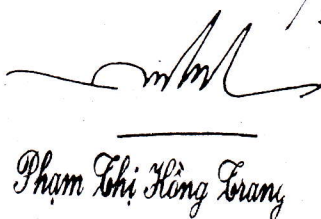 Phạm Thị Hồng Trang